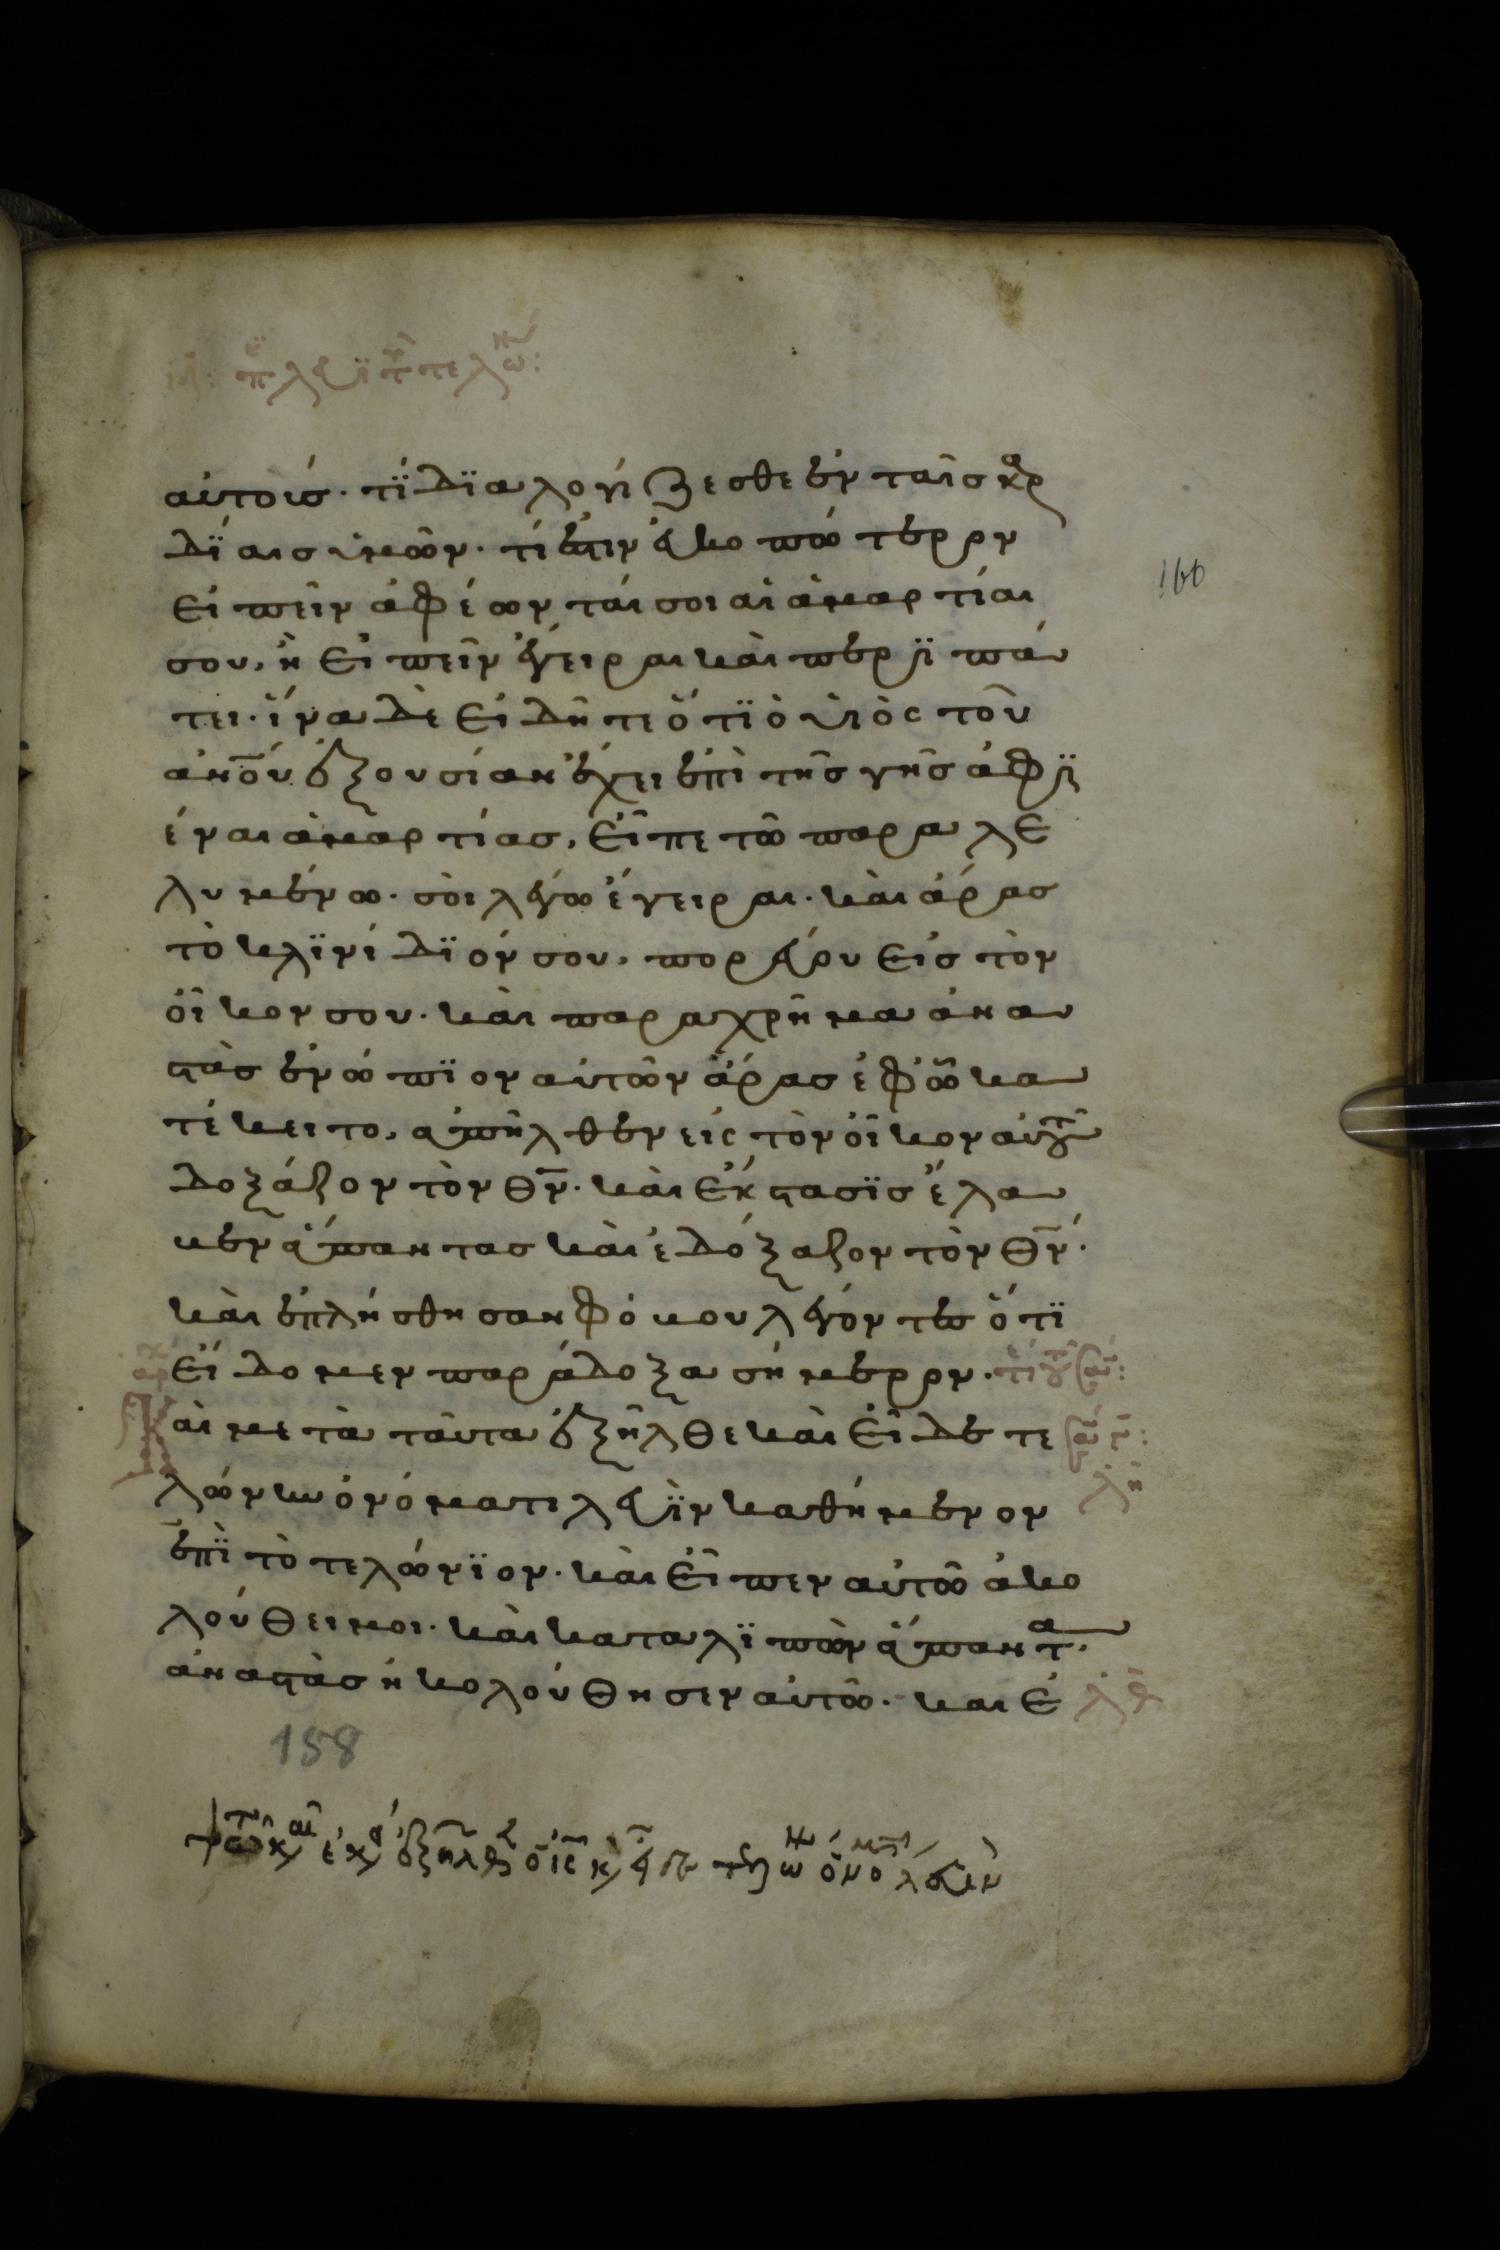 αὐτοῖς· τί διαλογίζεσθε ἐν ταῖς καρ
δίαις ὑμῶν· τί ἐστιν εὐκοπώτερον
εἰπεῖν ἀφέωνταί σοι αἱ ἁμαρτίαι
σου, ἢ εἰπεῖν ἔγειραι καὶ περιπά
τει· ἵνα δὲ εἰδῆτε ὅτι ὁ υἱὸς τοῦ
ἀνου ἐξουσίαν ἔχει ἐπὶ τῆς γῆς ἀφι
έναι ἁμαρτίας, εἶπε τῶ παραλε
λυμένω· σοὶ λέγω ἔγειραι· καὶ ἄρας
τὸ κλινίδιόν σου, πορεύου εἰς τὸν
οἶκον σου· καὶ παραχρῆμα ἀνα
στὰς ἐνώπιον αὐτῶν ἄρας ἐφ' ὧ κα
τέκειτο, ἀπῆλθεν εἰς τὸν οἶκον αὐτοῦ
δοξάζον τὸν θν· καὶ ἔκστασις ἔλα
βεν ἅπαντας καὶ ἐδόξαζον τὸν θν·
καὶ ἐπλήσθησαν φόβου λέγοντες ὅτι
εἴδομεν παράδοξα σήμερον·
αὶ μετὰ ταῦτα ἐξῆλθε καὶ εἶδε τε
λώνην ὀνόματι λευῒν καθήμενον
ἐπὶ τὸ τελώνιον· καὶ εἶπεν αὐτῶ ἀκο
λούθει μοι· καὶ καταλιπὼν ἅπαντα·
ἀναστὰς ἠκολούθησεν αὐτῶ· και ε
λθ
158
166